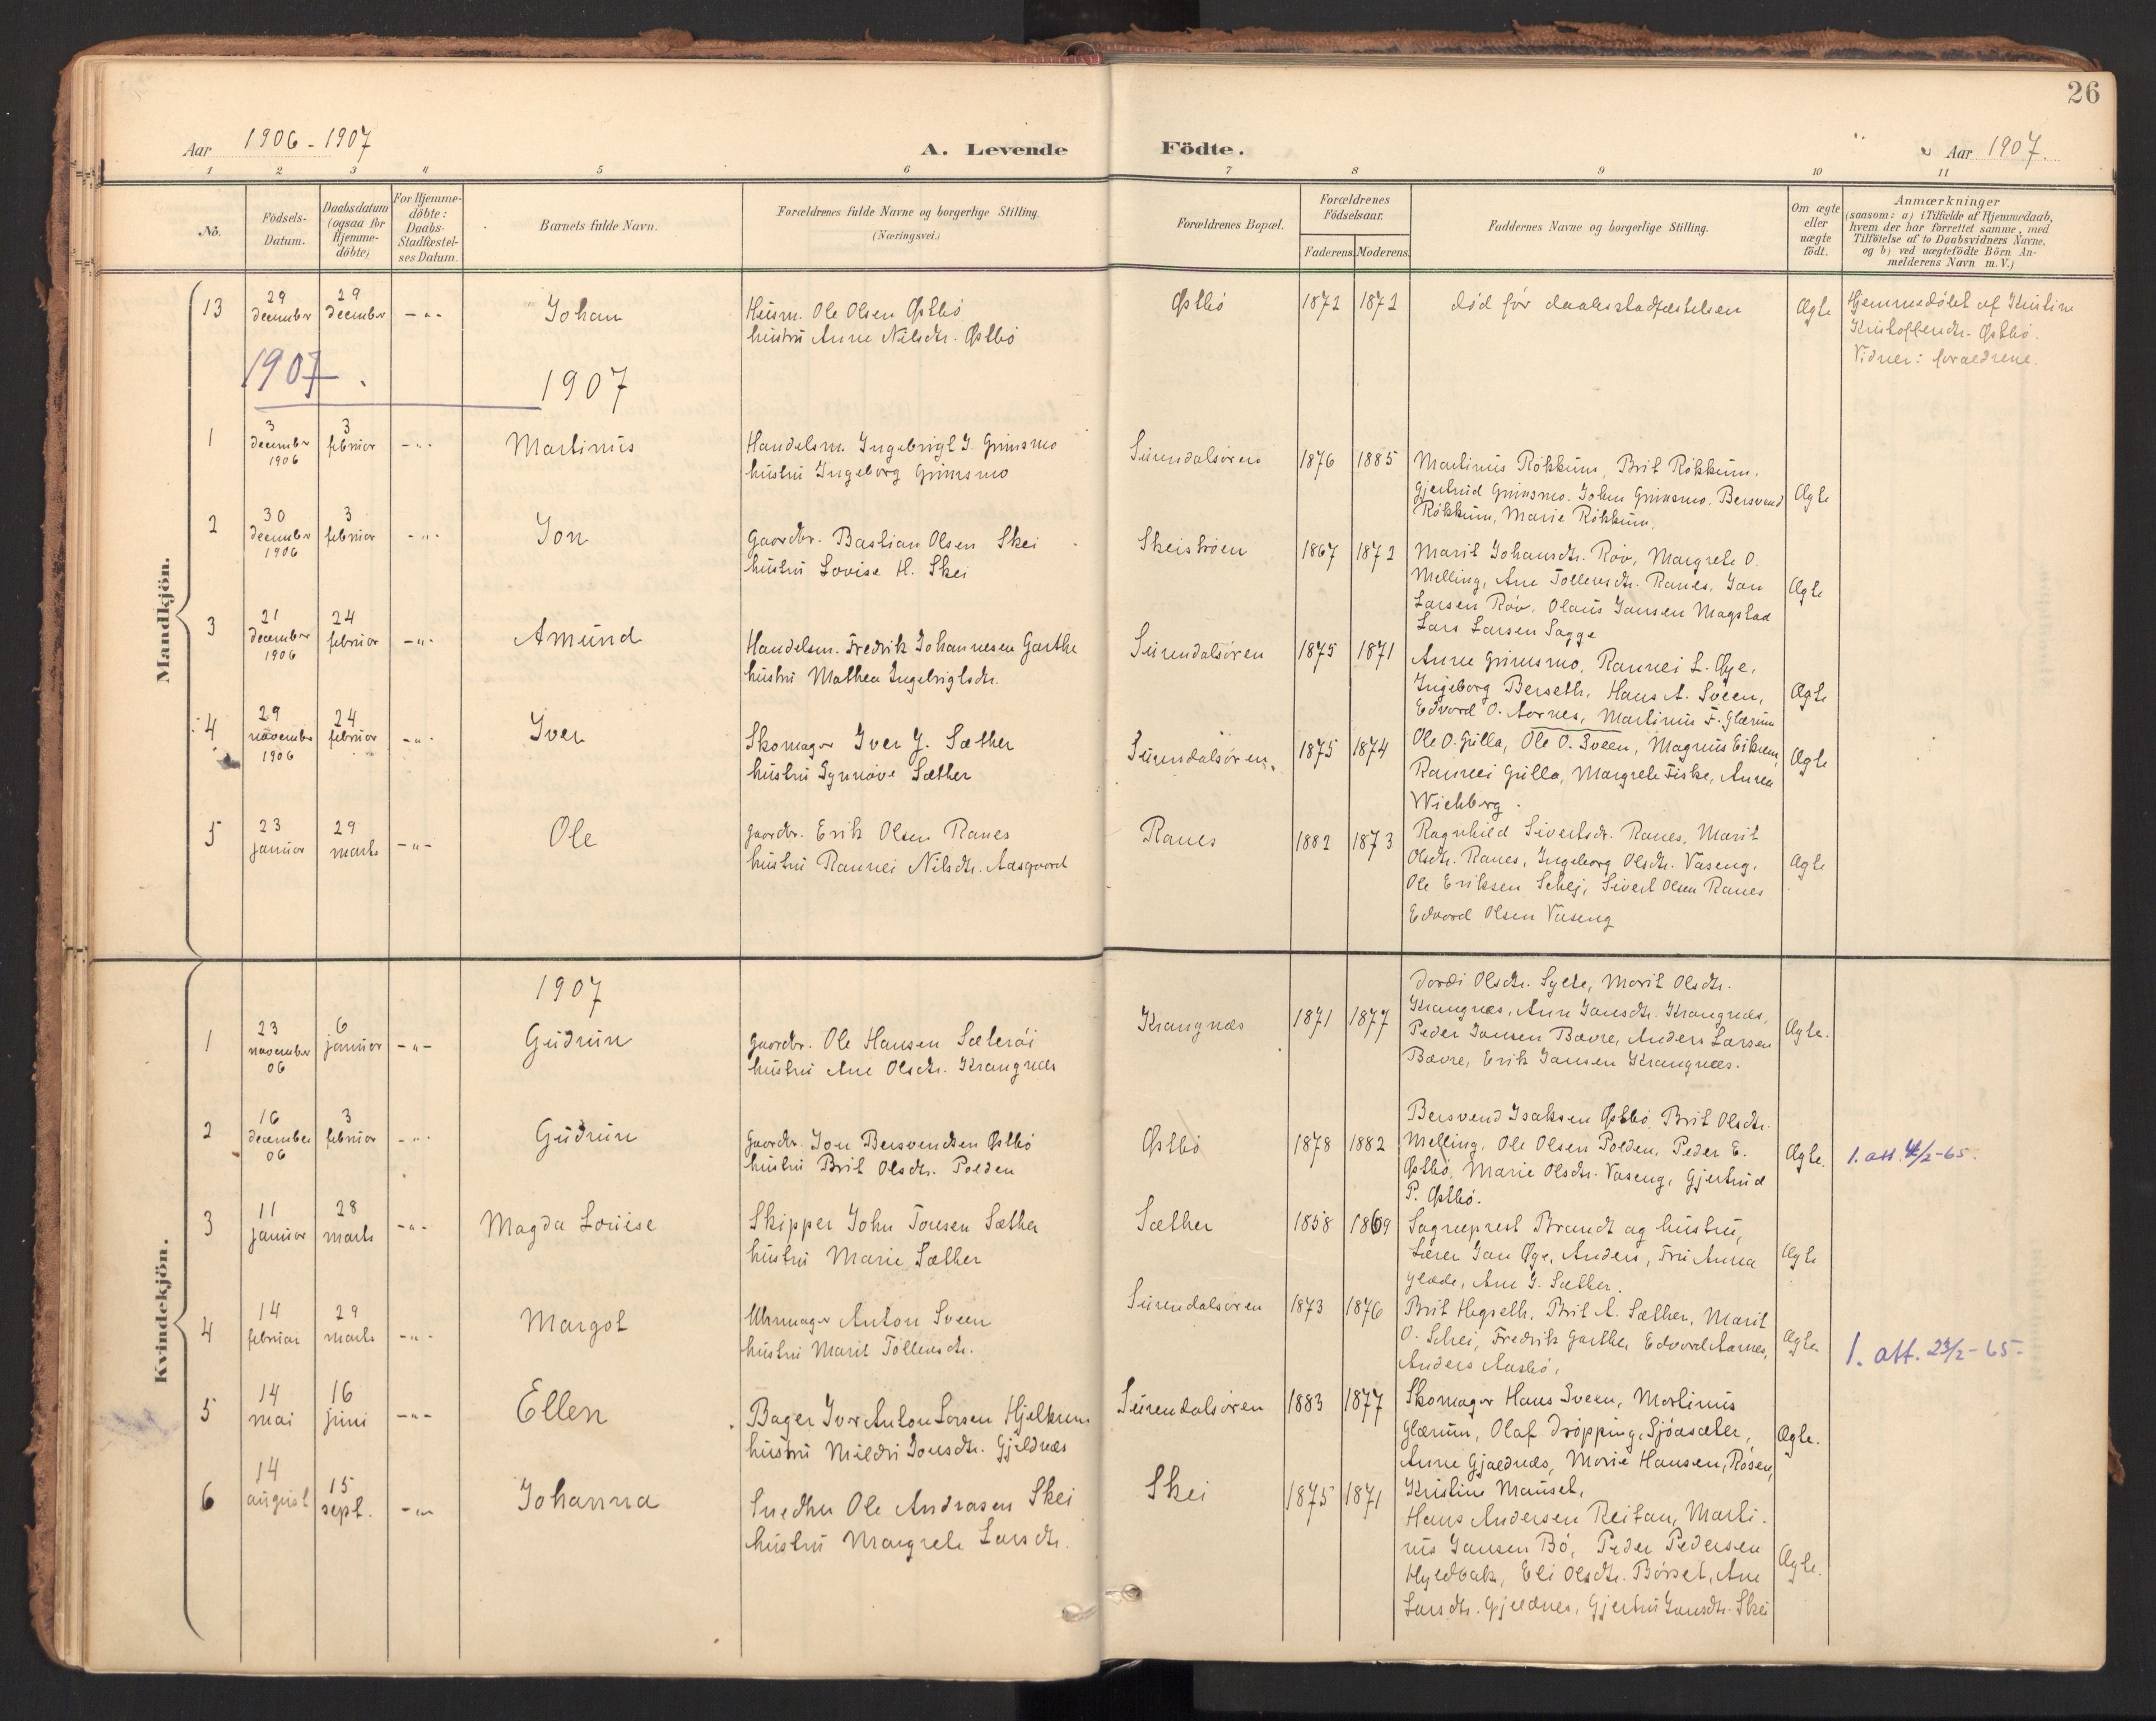 26
Aar 1906-1907
A. Levende Födte.
Aar 1907.
1 2 3 4 5 6 7 8 9 10 11
No.
Födsels-Datum.
Daabsdatum (ogsaa for Hjemme-döbte)
For Hjemme-döbte: Daabs-Stadfæstel-ses Datum.
Barnets fulde Navn.
Forældrenes fulde Navne og borgerlige Stilling. (Næringsvei.)
Forældrenes Bopæl.
Forældrenes Födselsaar.
Faderens. Moderens.
Faddernes Navne og borgerlige Stilling.
Om ægte eller uægte födt.
Anmærkninger
(saasom: a) i Tilfælde af Hjemmedaab,
hvem der har forrettet samme, med
Tilföielse af to Daabsvidners Navne,
og b) ved uægtefödte Börn An-
melderens Navn m. V.)
Mandkjön.
13 29 december 29 december -"- Johan
Husm. Ole Olsen Østbö
hustru Anne Nilsdtr. Østbö
Østbö 1872 1872 död för daabsstadfæstelsen Ægte
Hjemmedöbt af Kristine
Kristoffersdtr. Østbö.
Vidner: forældrene.
1907.
1907
1 3 december 1906 3 februar -"- Martinus
Handelsm. Ingebrigt J. Grimsmo
hustru Ingeborg Grimsmo
Surendalsören 1876 1885
Martinus Rökkum, Brit Rökkum.
Gjertrud Grimsmo. John Grimsmo. Bersvend
Rökkum, Marie Rökkum.
Ægte
2 30 december 1906 3 februar -"- Jon
Gaardbr. Bastian Olsen Skei
hustru Lovise H. Skei
Skeistrøen 1867 1872
Marit Johansdtr. Röv, Margrete O.
Melling, Ane Tollevsdtr. Ranes, Jon
Larsen Röv, Olaus Jansen Magstad
Lars Larsen Sagge
Ægte
3 21 december 1906 24 februar -"- Amund
Handelsm. Fredrik Johannesen Garthe
hustru Mathea Ingebrigtsdtr.
Surendalsören 1875 1871
Anne Grimsmo, Rannei L. Øye,
Ingeborg Berseth, Hans A. Sveen,
Edvard O. Aarnes, Martinus F. Glærum
Ægte
4 29 november 1906 24 februar -"- Iver
Skomager Iver J. Sæther
hustru Synnöve Sæther
Surendalsören. 1875 1874
Ole O. Gulla, Ole O. Sveen, Magnus Eikrem,
Rannei Gulla, Margrete Fiske, Anna
Wichberg.
Ægte
5 23 januar 29 marts -"- Ole
gaardbr. Erik Olsen Ranes
hustru Rannei Nilsdtr. Aasgaard
Ranes 1882 1873
Ragnhild Sivertsdr. Ranes, Marit
Olsdtr. Ranes, Ingeborg Olsdtr. Vaseng,
Ole Eriksen Schej, Sivert Olsen Ranes
Edvard Olsen Vaseng
Ægte
Kvindekjön.
1907
1 23 november 06 6 januar -"- Gudrun
gaardbr. Ole Hansen Sæteröi
hustru Ane Olsdtr. Krangnæs
Krangnæs 1871 1877
Dordi Olsdtr. Sylte, Marit Olsdtr.
Krangnæs, Ane Jansdtr. Krangnæs,
Peder Jansen Bævre, Anders Larsen
Bævre, Erik Jansen Krangnæs.
Ægte.
2 16 december 06 3 februar -"- Gudrun
Gaardbr. Jon Bersvendsen Østbö
hustru Brit Olsdtr. Polden
Østbö 1878 1882
Bersvend Isaksen Østbö, Brit Olsdtr.
Melling, Ole Olsen Polden, Peder E.
Østbö, Marie Olsdtr. Vaseng, Gjertrud
P. Østbö.
Ægte.
1. att. 4/2-65.
3 11 januar 28 marts -"- Magda Louise
Skipper John Tonesen Sæther
hustru Marie Sæther
Sæther 1858 1869
Sogneprest Brandt og hustru,
Lærer Jon Øye, Anders, Fru Anna
Gløde, Ane J. Sæther.
Ægte
4 14 februar 29 marts -"- Margot
Uhrmager Anton Sveen
hustru Marit Tollevsdtr.
Surendalsören 1873 1876
Brit Hegseth, Brit A. Sæther, Marit
O. Schei, Fredrik Garthe, Edvard Aarnes,
Anders Aasbö,
Ægte
1. att. 23/2-65-
5 14 mai 16 juni -"- Ellen
Bager Ivar Anton Larsen Hjelkrem
hustru Mildri Jonsdtr. Gjeldnæs
Surendalsören 1883 1877
Skomager Hans Sveen, Martinus
Glærum, Olaf Dröpping, Sjöasæter,
Anne Gjældnæs, Marie Hansen, Rösen,
Kristine Mauset,
Ægte.
6 14 august 15 sept. -"- Johanna
Smedhm Ole Andrasen Skei
hustru Margrete Larsdtr.
Skei 1875 1871
Hans Andersen Reitan, Marti-
nus Jansen Bö, Peder Pedersen
Hyldbak, Eli Olsdtr. Börset, Ane
Larsdtr. Gjeldnes, Gjertru Jonsdtr. Skei
Ægte.